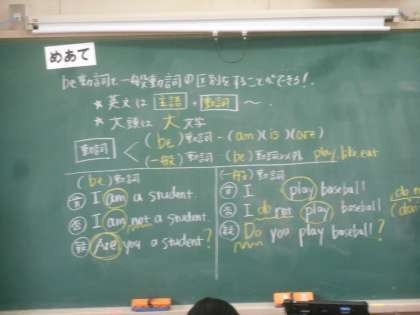 めあて
be動詞と一般動詞の区別をすることができる!.
★英文は 主語 + 動詞 ~.
★大頭は 大文字
動詞 < (be)動詞 - (am)(is)(are)
(一般)動詞 (be)動詞以外 play, like, eat
(be)動詞
肯 I am a student.
否 I am not a student.
疑 Are you a student?
(一般)動詞
肯 I play baseball
否 I do not play baseball
疑 Do you play baseball?